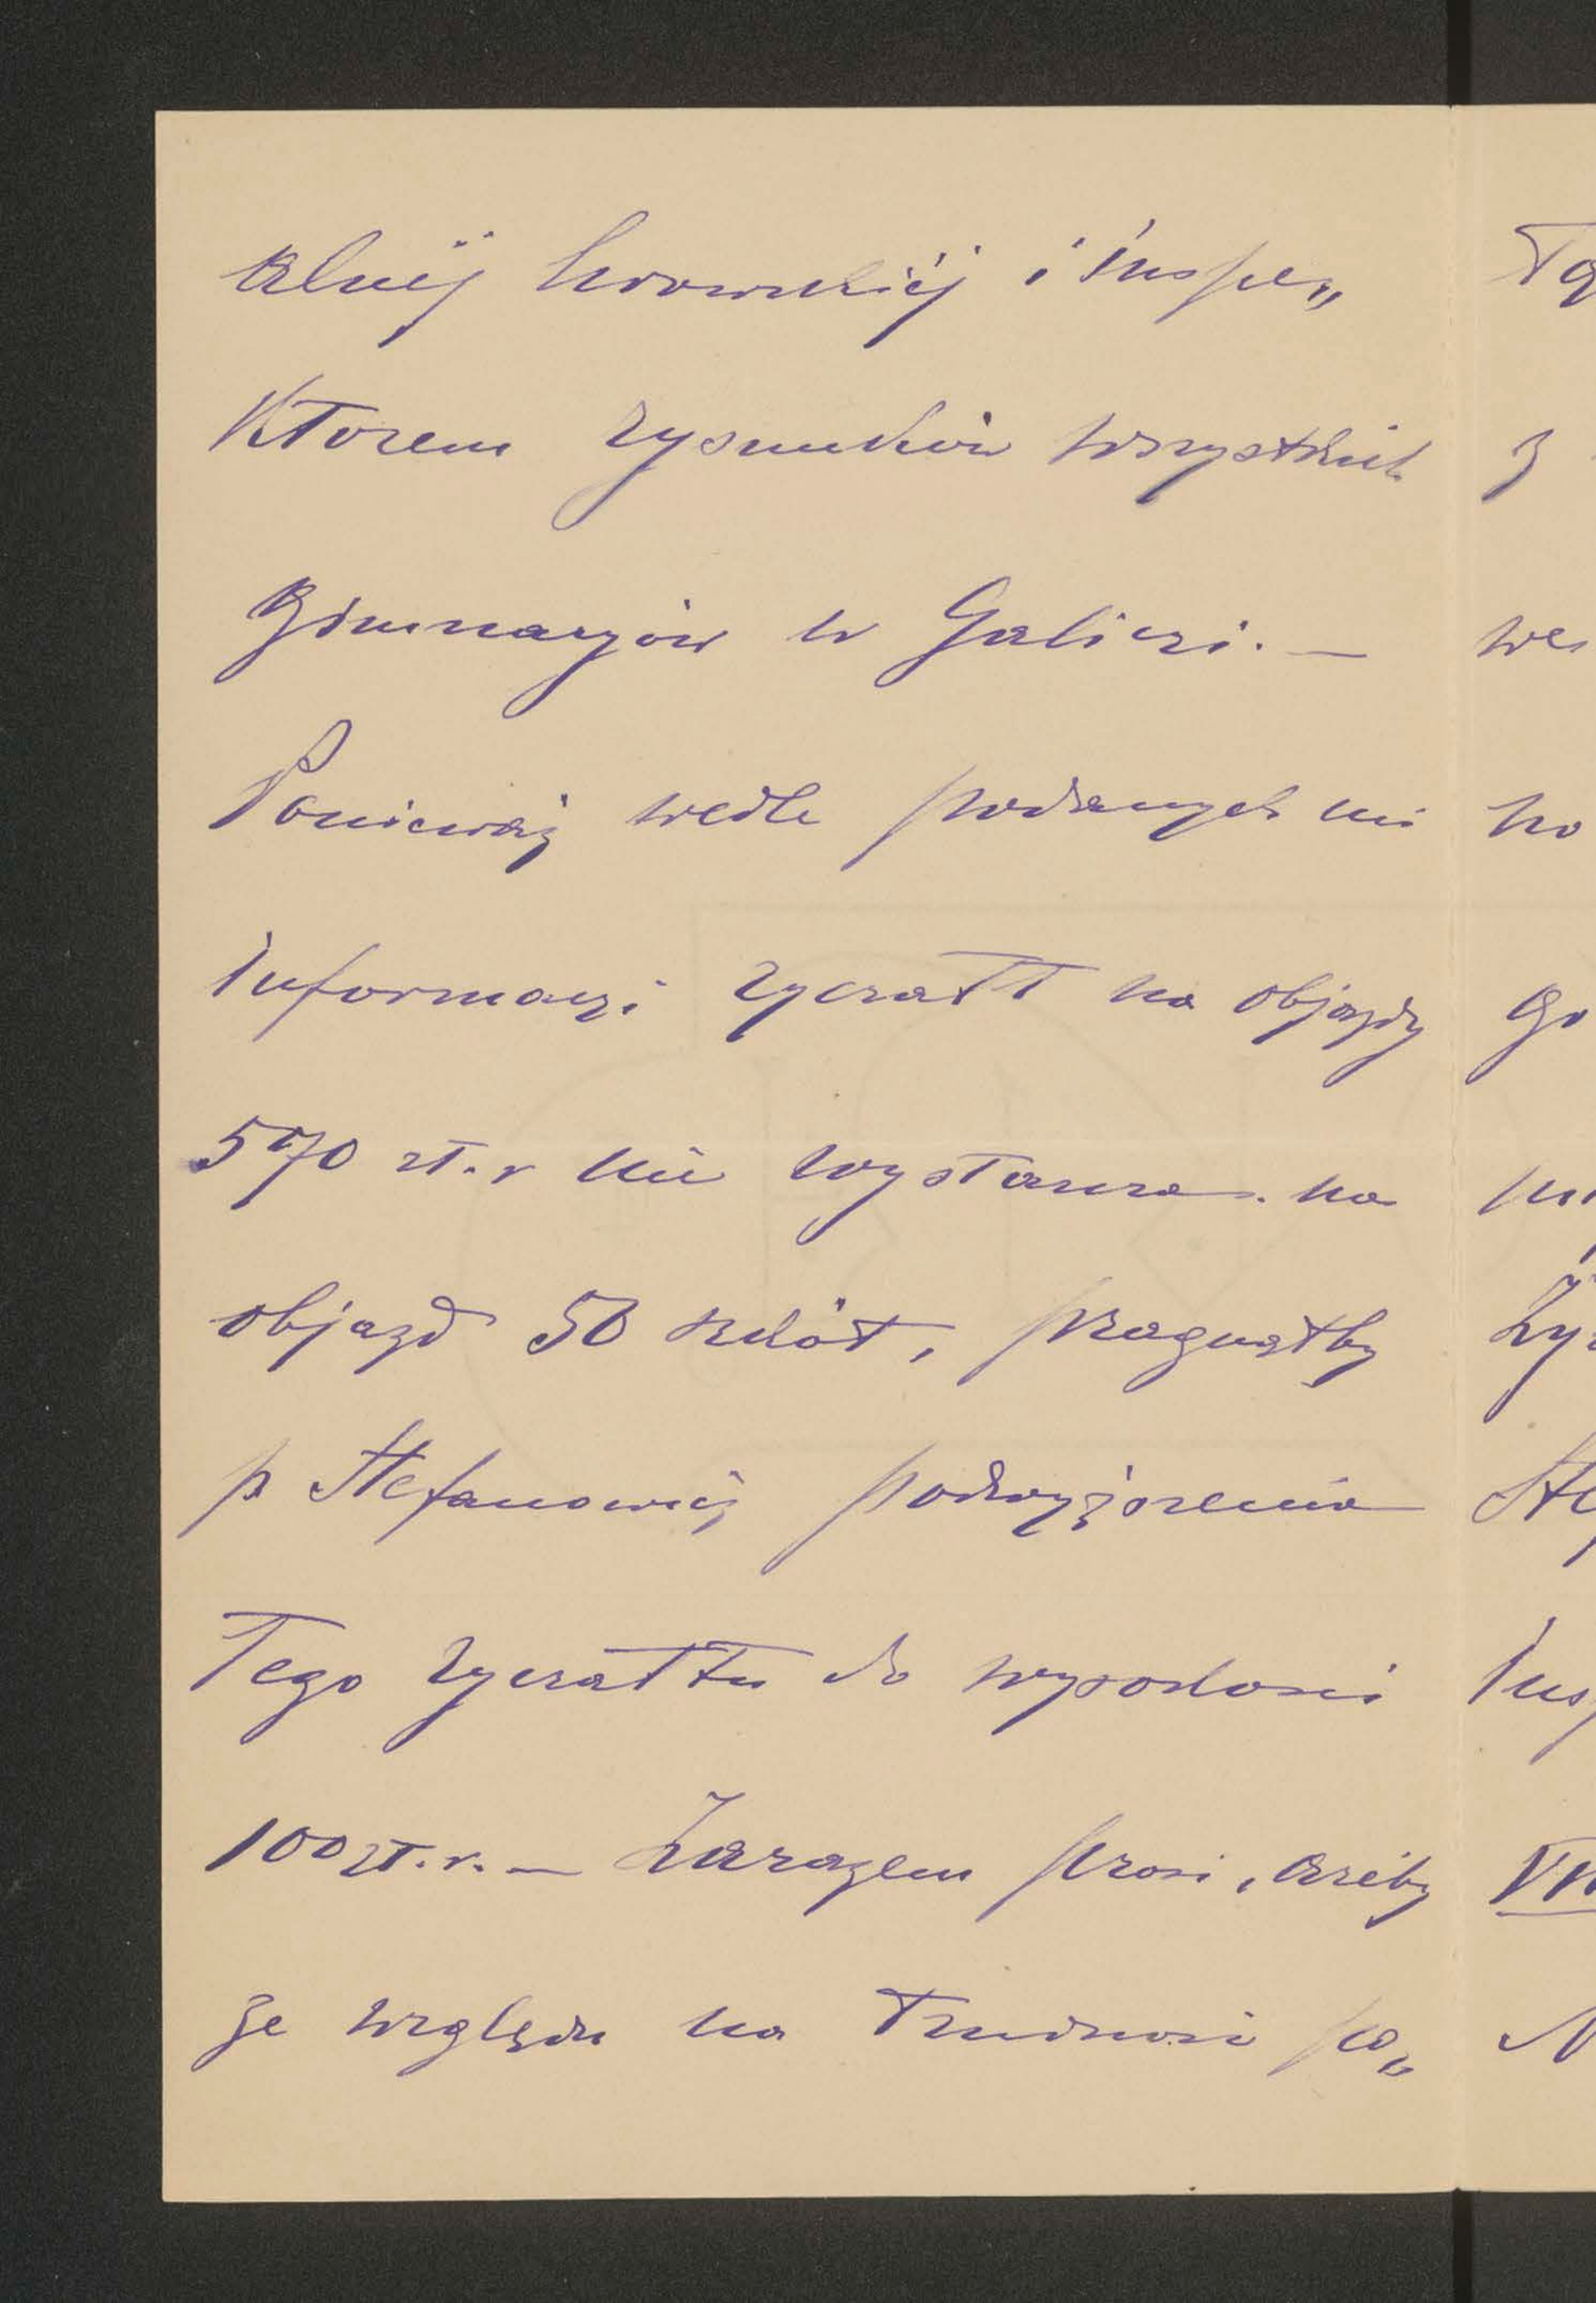 alnéj lwowskiéj i inspe„
ktorem rysunków wszystkich
gimnazjów w Galiczi. —
Ponieważ wedle podanych mi
informaczi ryczałt na objazdy
570 zł. r nie wystarcza na
objazd 50 szkół, pragnąłby
p Stefanowicz podwyższenia
Tego ryczałtu do wysokości
100 zł. r. — Zarazem prosi, ażeby
ze względu na Trudności po„